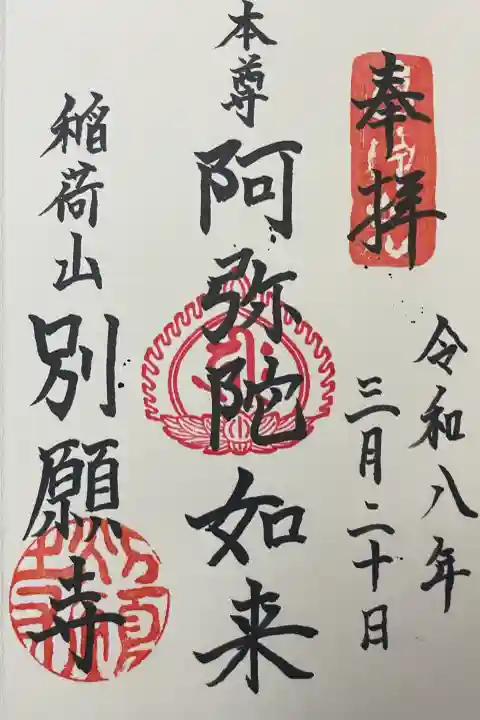 奉拝
令和八年
三月二十日
本尊
阿弥陀如来
稲荷山
別願寺